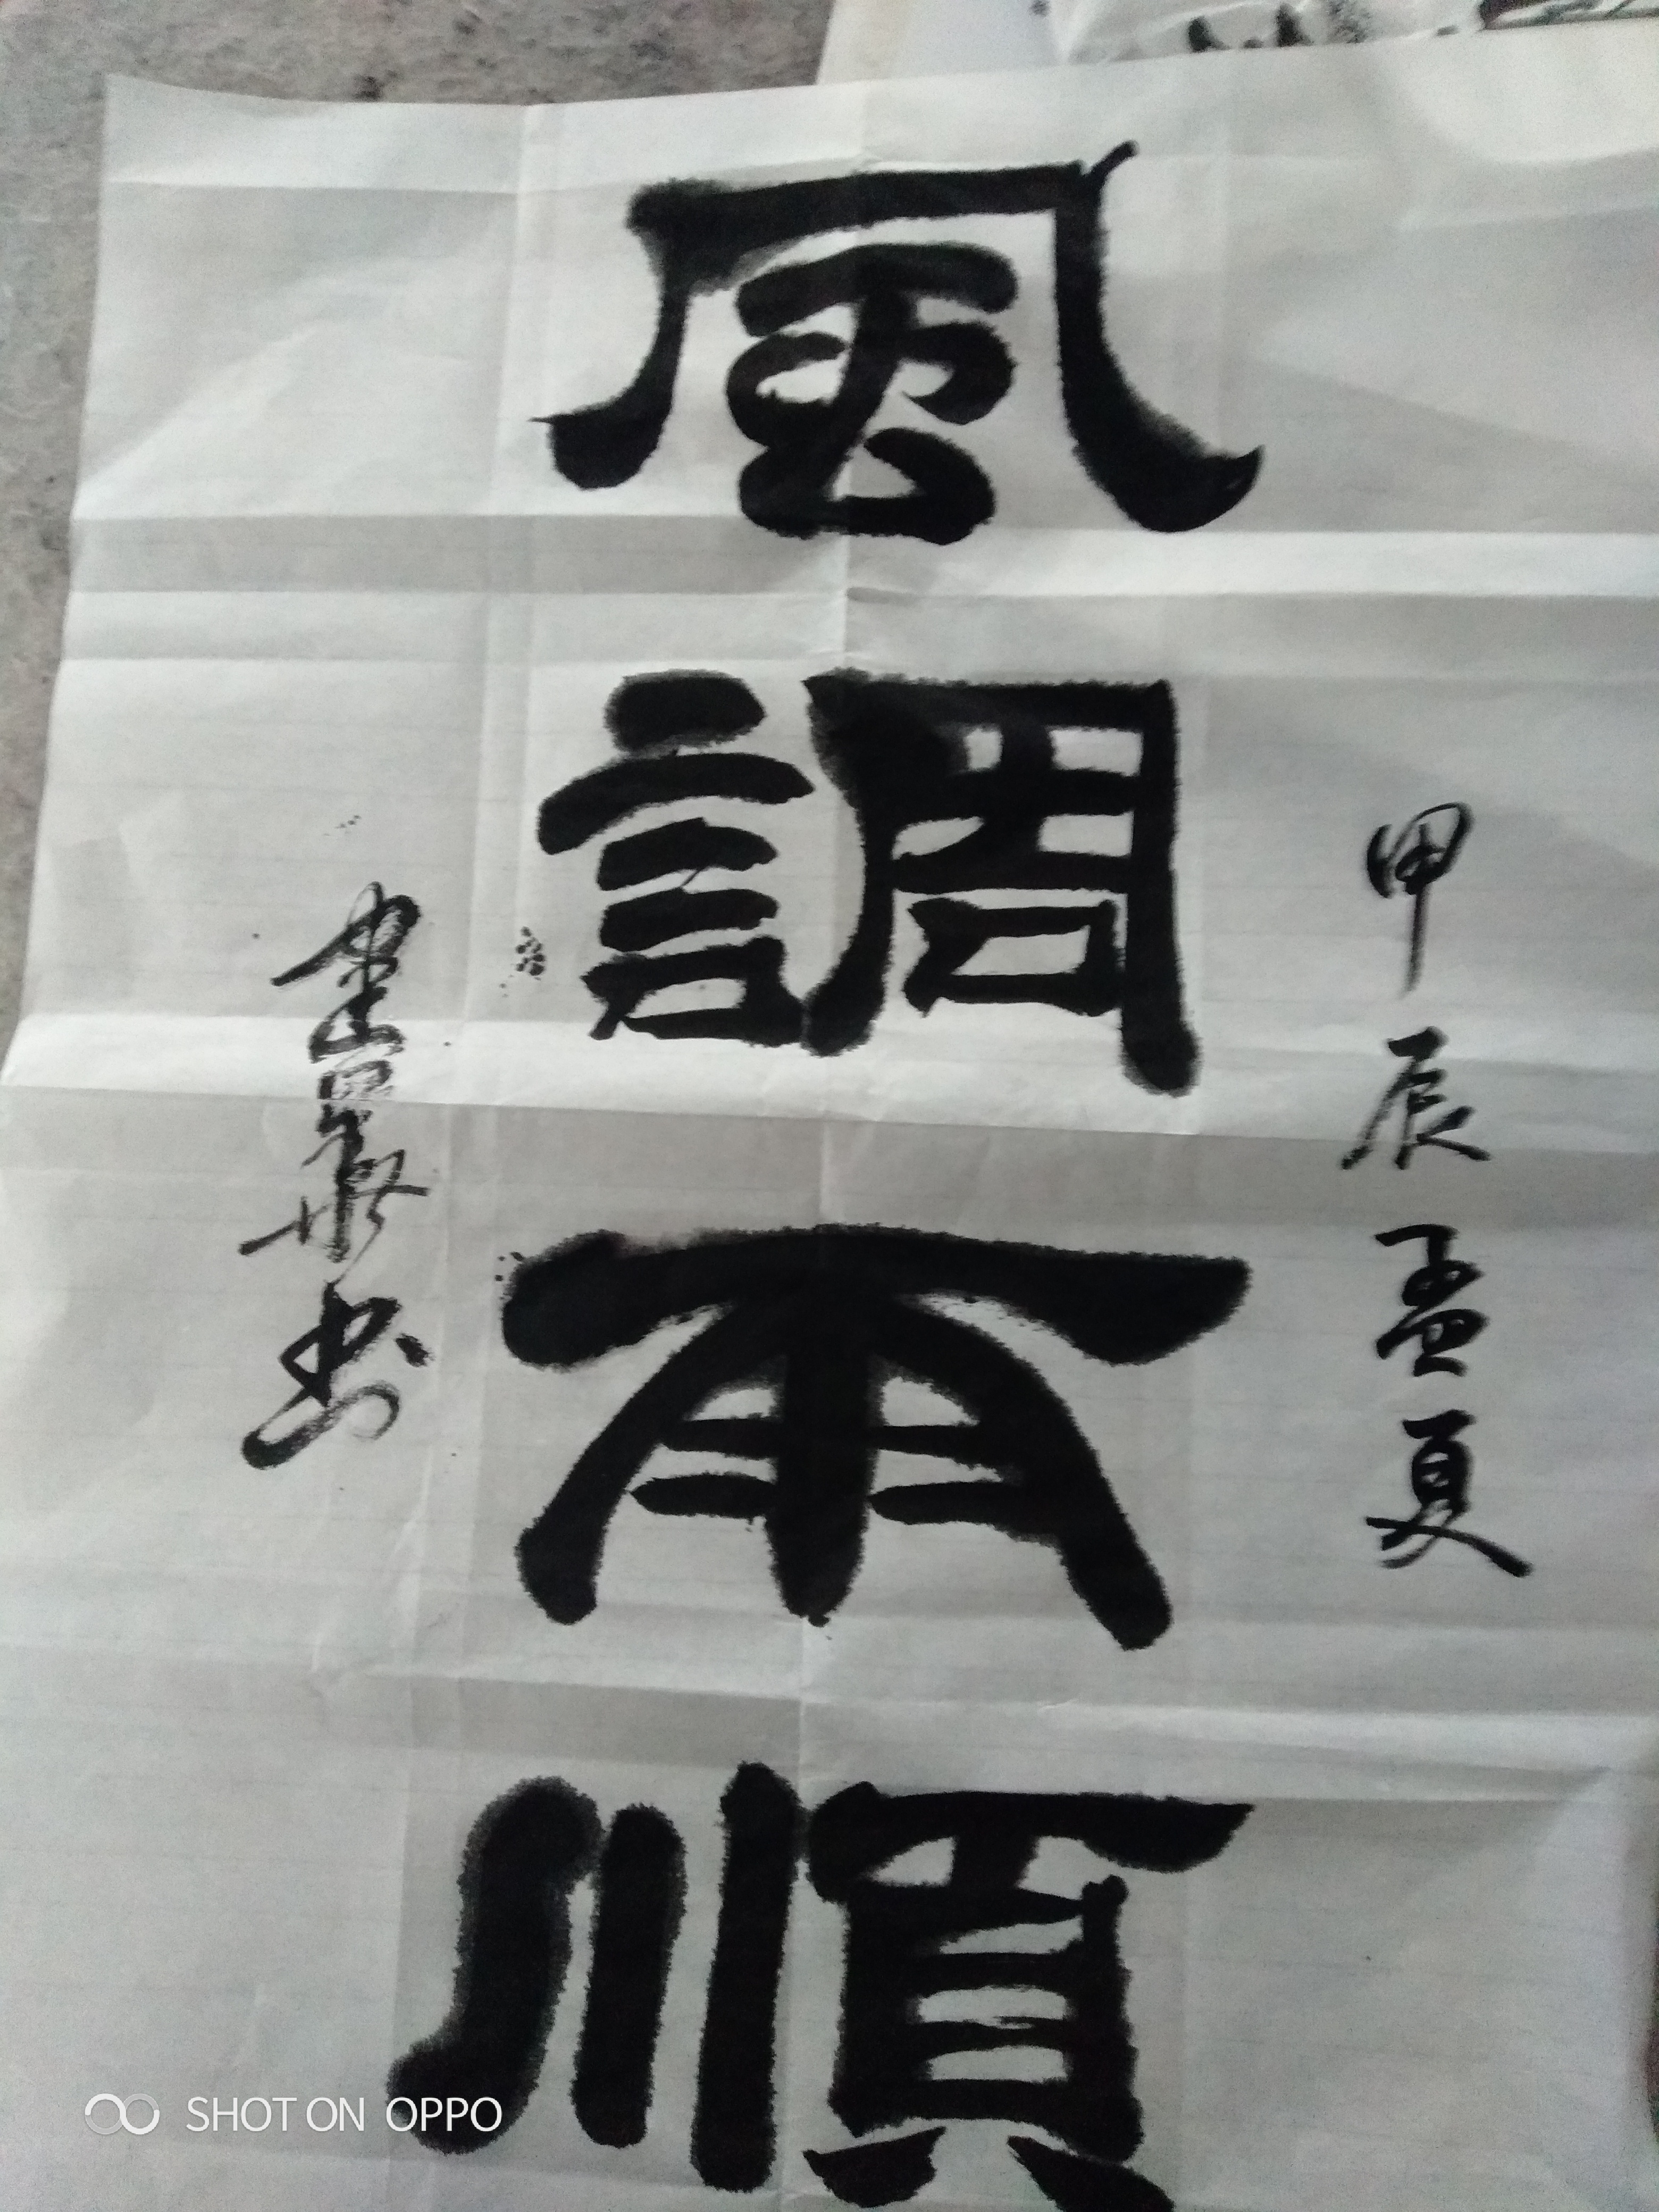 甲辰孟夏
風調雨順
書
SHOT ON OPPO